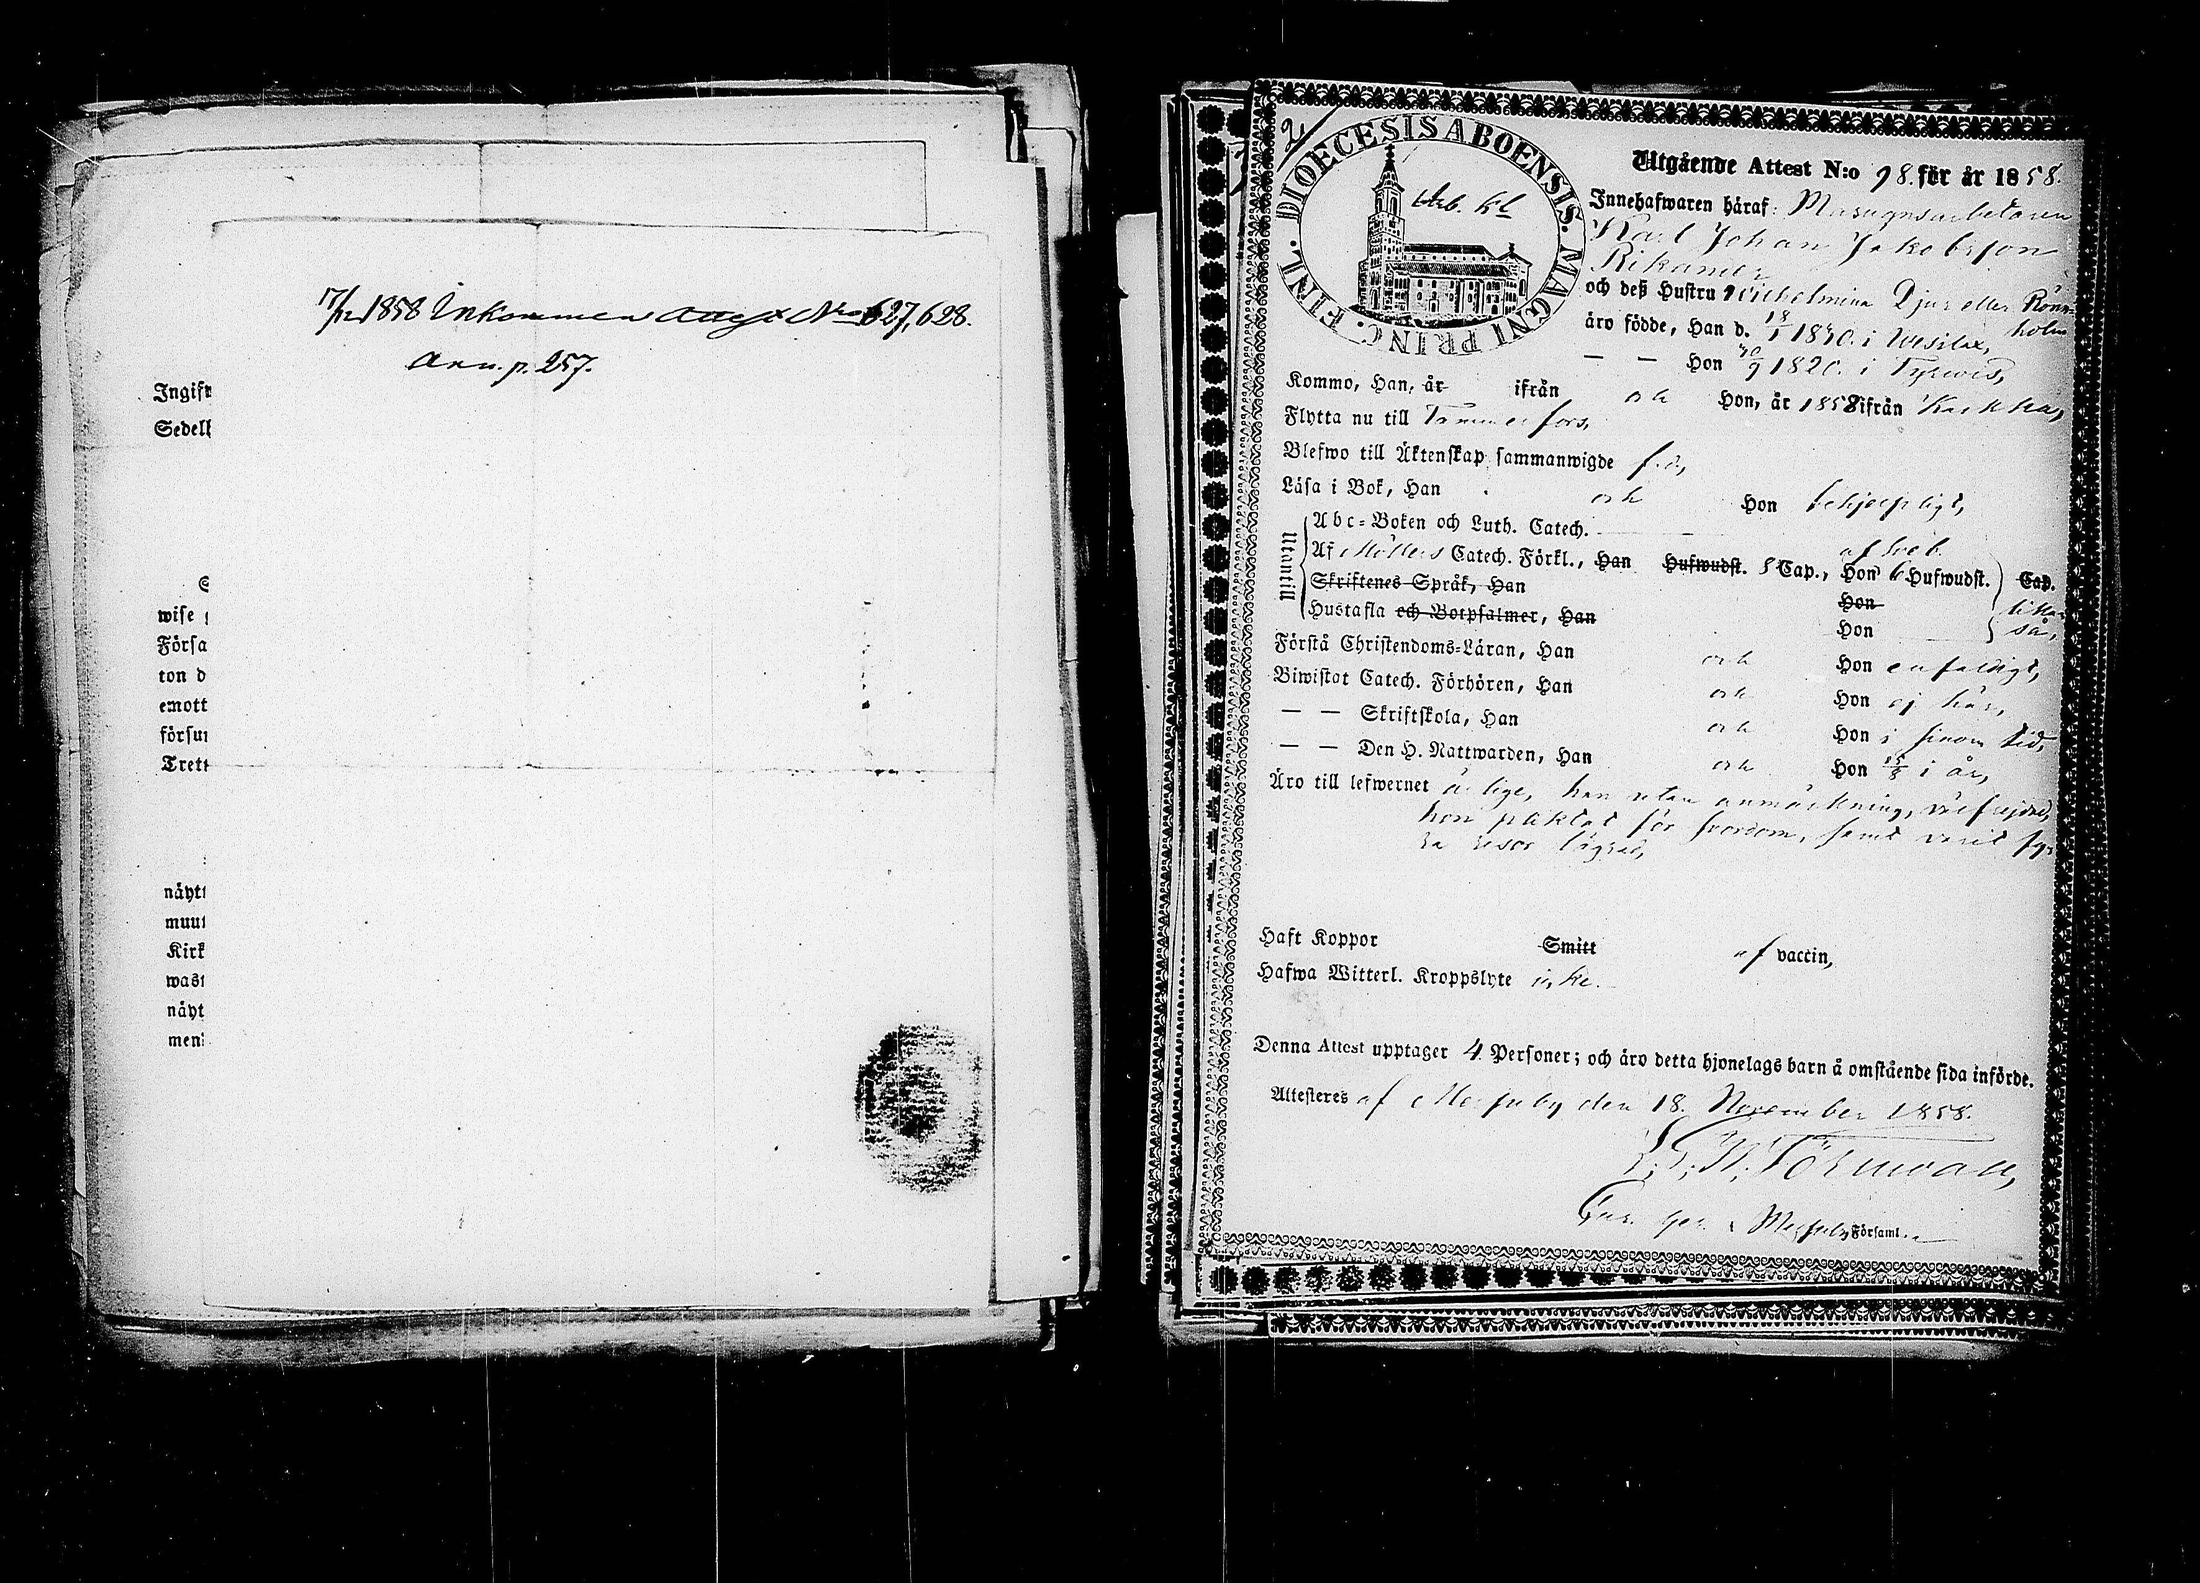 7/12 1858 Inkommen Attest No 627, 628.
Ann. p. 257.
Ingift
Sedell
S
wise
Försa
ton d
emott
försur
Trett
näyt
muut
Kirk
wast
näyt
men
2
FINL. DIOECESIS ABOENSIS. MAGNI PRINC.
Utgående Attest N:o 98. för år 1858.
Innehafwaren häraf: Masugnsarbetaren
Karl Johan Jakobsson
och deß Hustru Wilhelmina Djur eller Rönn-
holm
äro födde, Han d. 18/1 1840. i Wesilax,
— — Hon 30/9 1820. i Tyrwis,
Kommo, Han, år ifrån och Hon, år 1858 ifrån Karkku,
Flytta nu till Tammerfors,
Blefwo till Äktenskap sammanwigde
Läsa i Bok, Han och Hon behjelpligt,
Utantill
Abc-Boken och Luth. Catech.
Af Möllers Catech. Förkl., Han Hufwudst. 8 Cap., Hon 6 Hufwudst. Cap.
Skriftenes Språk, Han Hon
Hustafla och Botpsalmer, Han Hon
likaså,
Förstå Christendoms-Läran, Han och Hon enfaldigt,
Biwistat Catech. Förhören, Han och Hon ej här,
— — Skriftskola, Han och Hon i sinom tid,
— — Den H. Nattwarden, Han och Hon i år,
Äro till lefwernet ärlige, han utan anmärkning, välfrejdad,
hon pliktat för horsom, samt varit fy-
ra resor lägrad,
Haft Koppor Smitt af vaccin,
Hafwa Witterl. Kroppslyte icke.
Denna Attest upptager 4 Personer; och äro detta hjonelags barn å omstående sida införde.
Attesteres af Messuby den 18. November 1858.
Törnwall,
Messuby Församl.